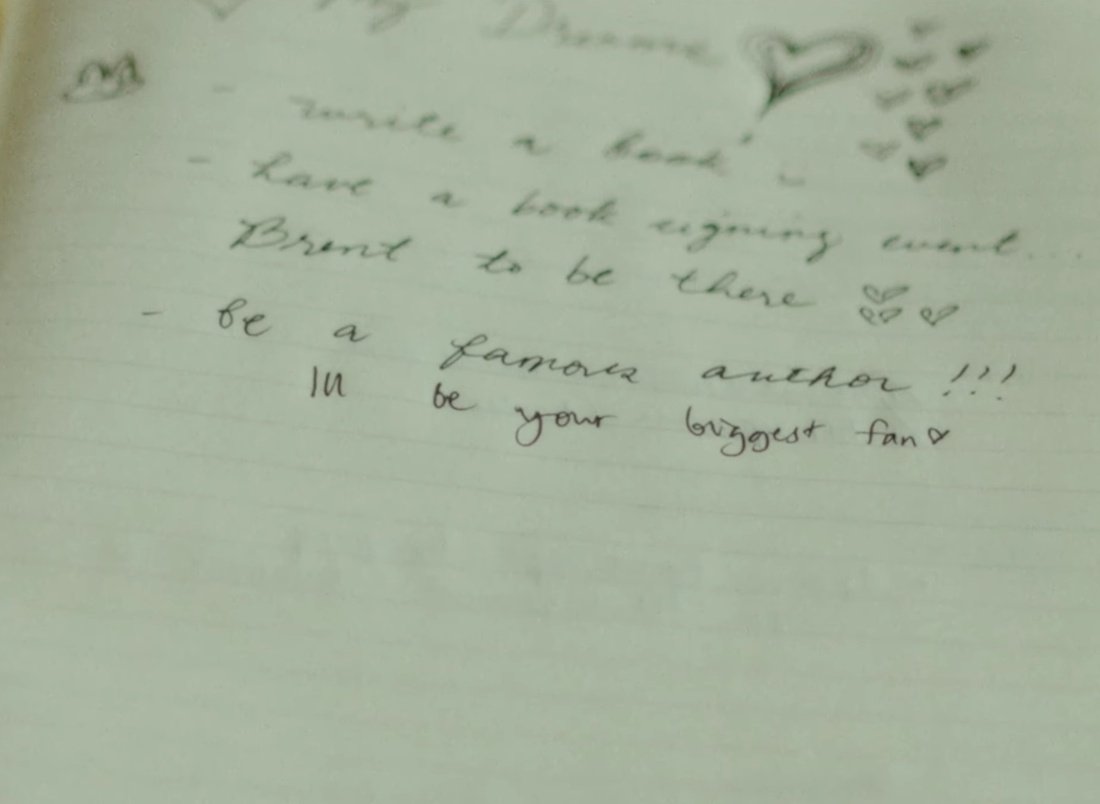 My Dreams
- write a book
- have a book signing event...
Brent to be there
- be a famous author!!!
I'll be your biggest fan